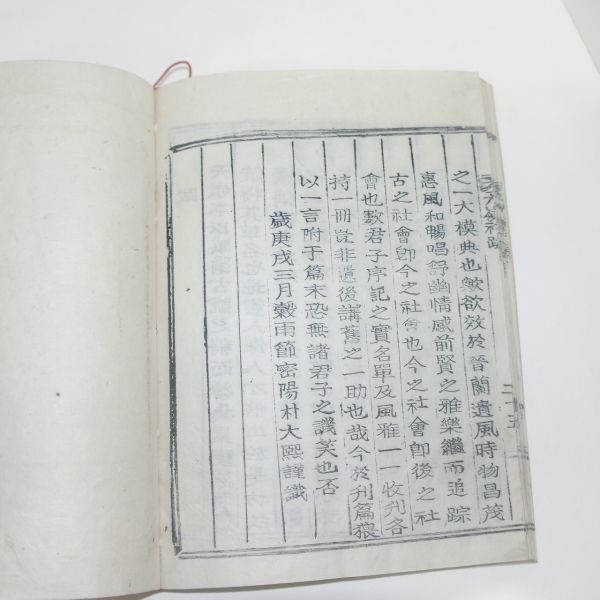 之一大模典也僉欲效於晉蘭遺風時物昌茂
惠風和暢唱舒幽情感前賢之雅樂繼而追踪
古之社會卽今之社會也今之社會卽後之社
會也數君子序記之實名單及風雅一一收刊各
持一冊豈非過後講舊之一助也哉今於刊篇猥
以一言附于篇末恐無諸君子之譏笑也否
歲庚戌三月穀雨節密陽朴大熙謹識
二十五